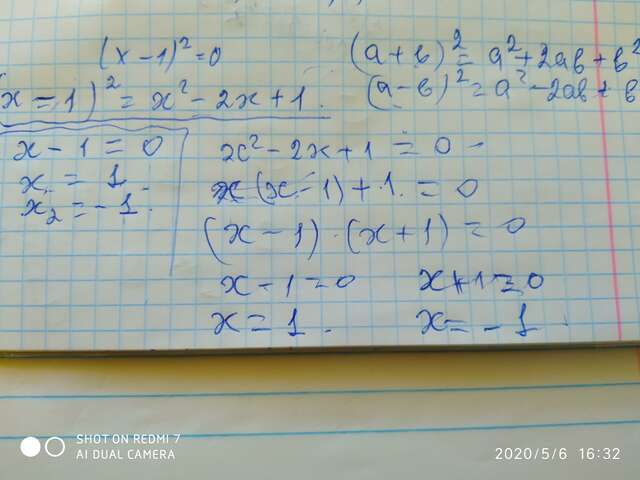 (x - 1)² = 0
(a + b)² = a² + 2ab + b²
(x = 1)² = x² - 2x + 1.
(a - b)² = a² - 2ab + b
x - 1 = 0
x₁ = 1
x₂ = - 1.
x² - 2x + 1 = 0
x (x - 1) + 1. = 0
(x - 1) · (x + 1) = 0
x - 1 = 0
x + 1 = 0
x = 1.
x = - 1.
SHOT ON REDMI 7
AI DUAL CAMERA
2020/5/6 16:32